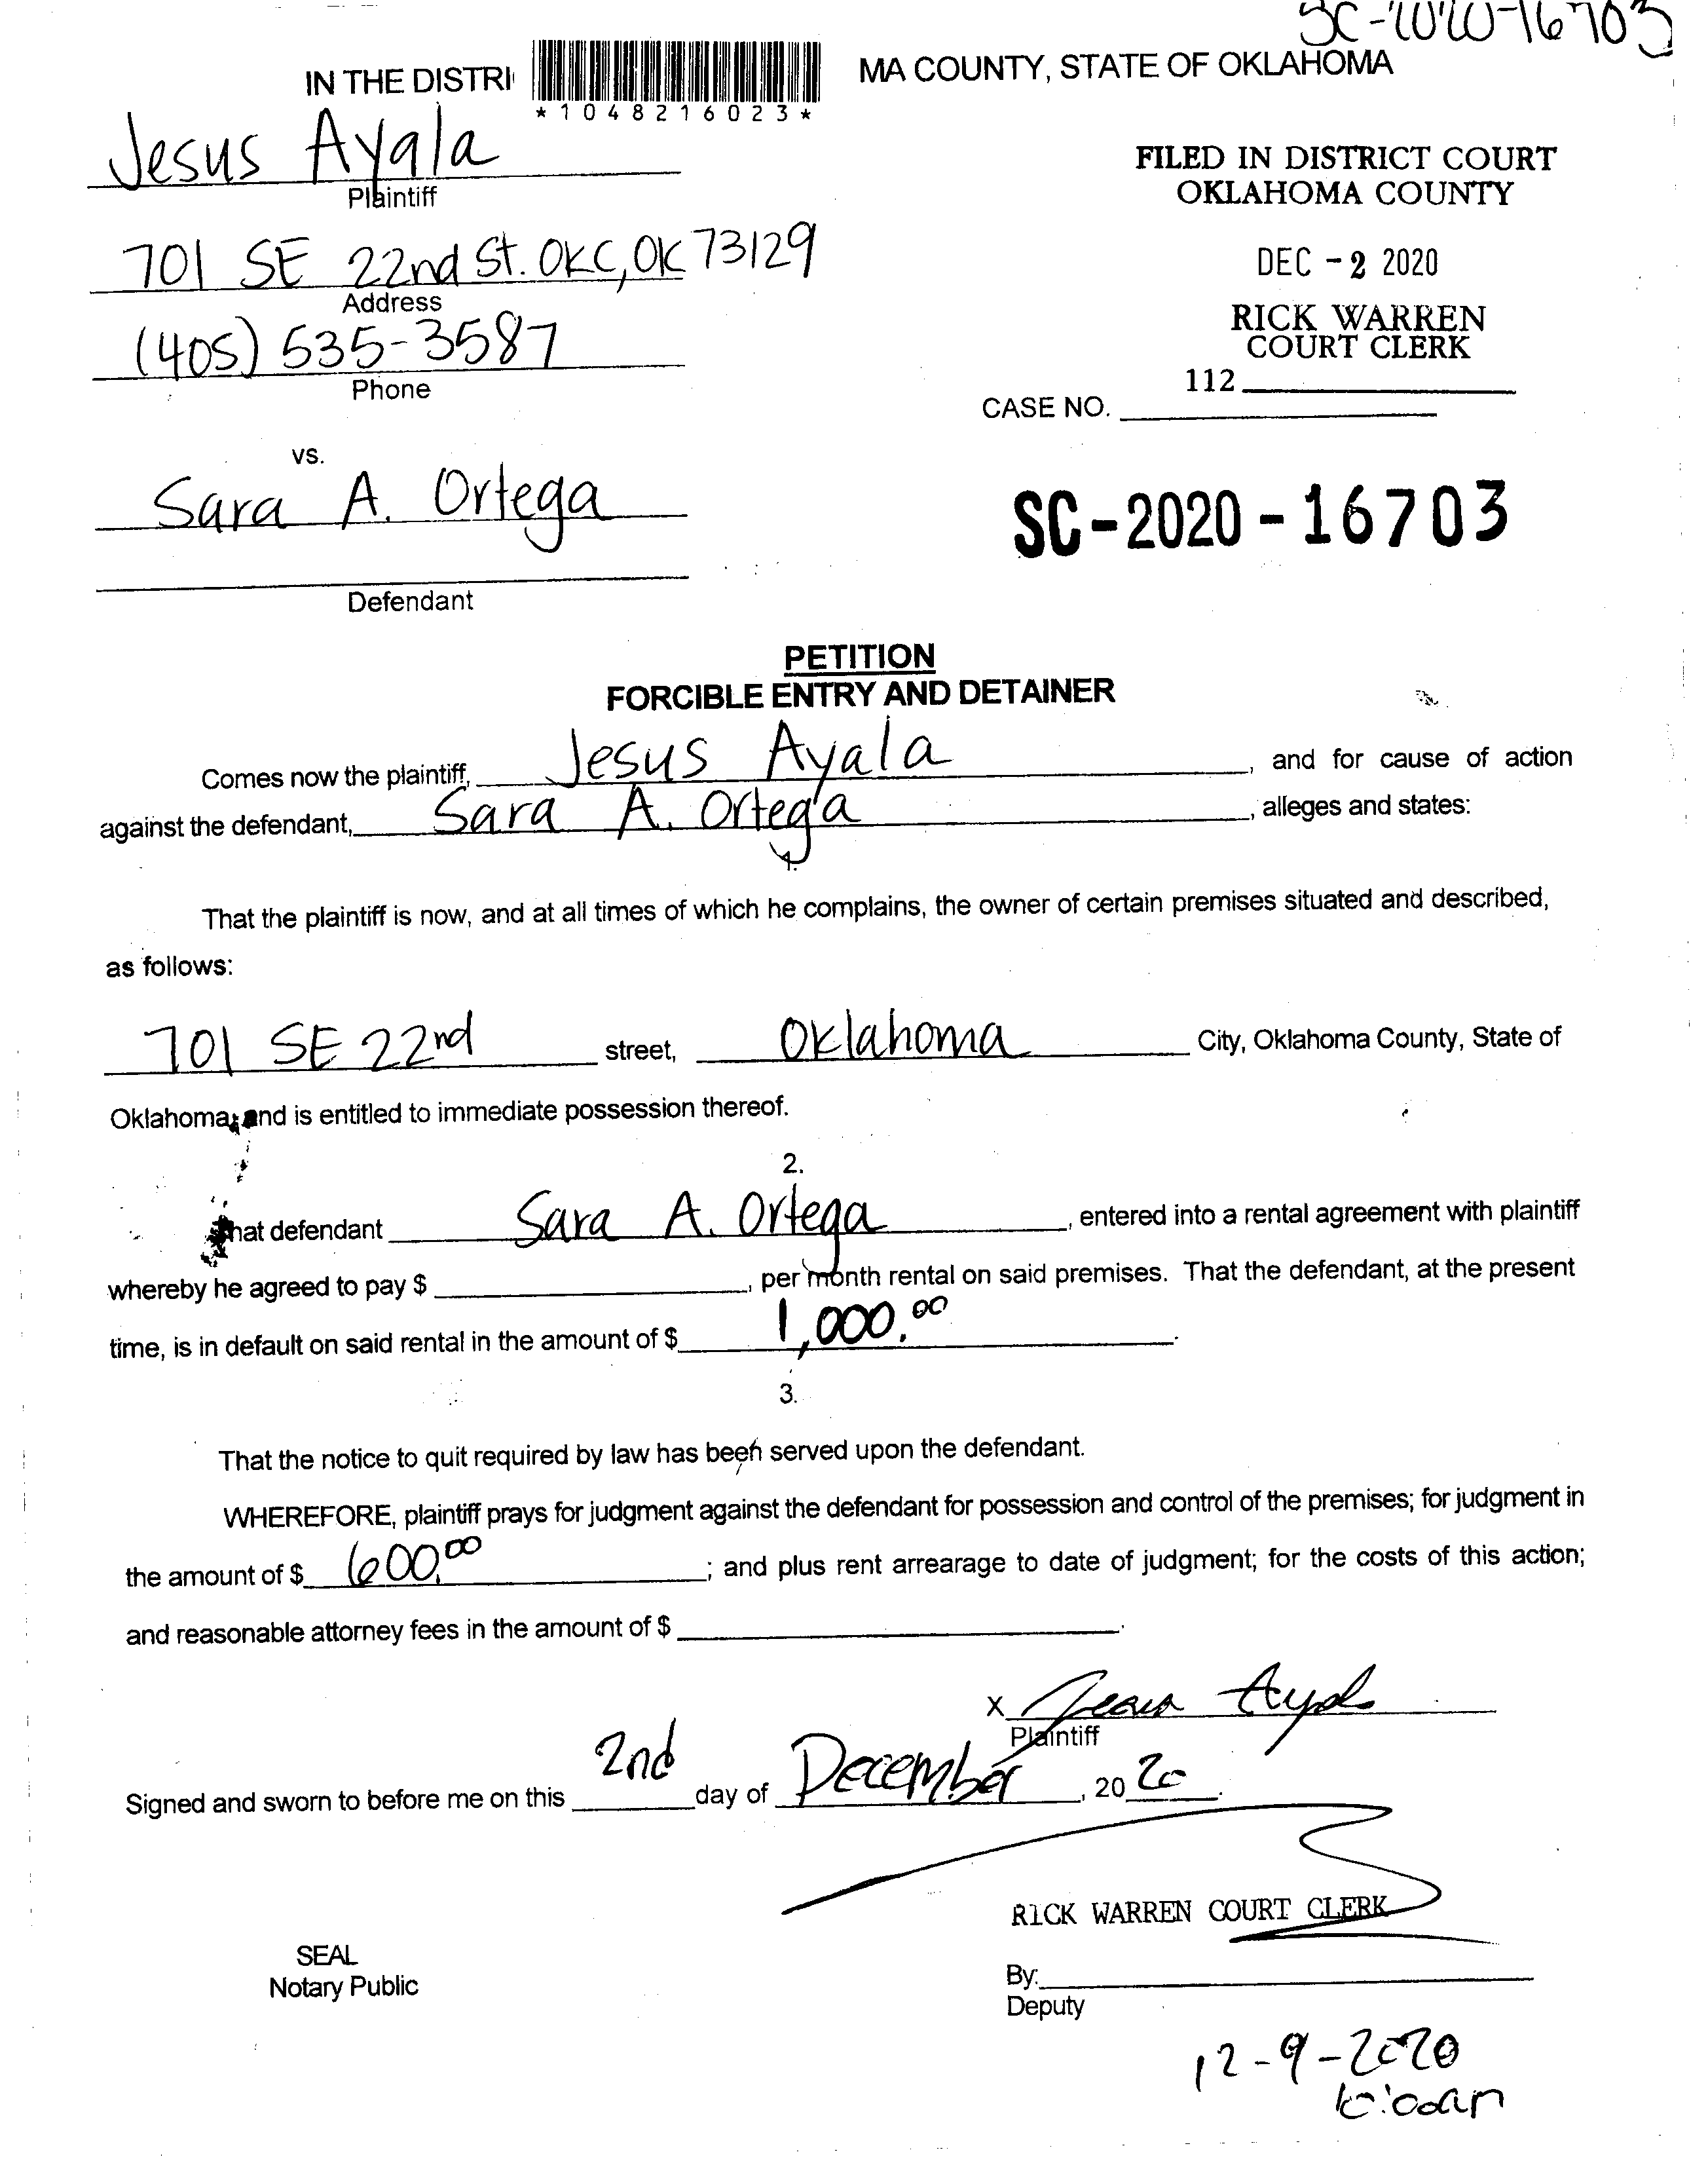 SC-2020-16703
IN THE DISTRI MA COUNTY, STATE OF OKLAHOMA
*1048216023*
Jesus Ayala
Plaintiff
FILED IN DISTRICT COURT
OKLAHOMA COUNTY
701 SE 22nd St. OKC, OK 73129
Address
DEC - 2 2020
(405) 535-3587
Phone
RICK WARREN
COURT CLERK
112
CASE NO.
vs.
Sara A. Ortega
Defendant
SC-2020-16703
PETITION
FORCIBLE ENTRY AND DETAINER
Comes now the plaintiff, Jesus Ayala, and for cause of action
against the defendant, Sara A. Ortega, alleges and states:
1.
That the plaintiff is now, and at all times of which he complains, the owner of certain premises situated and described,
as follows:
701 SE 22nd street, Oklahoma City, Oklahoma County, State of
Oklahoma; and is entitled to immediate possession thereof.
2.
That defendant Sara A. Ortega, entered into a rental agreement with plaintiff
whereby he agreed to pay $ , per month rental on said premises. That the defendant, at the present
time, is in default on said rental in the amount of $ 1,000.00.
3.
That the notice to quit required by law has been served upon the defendant.
WHEREFORE, plaintiff prays for judgment against the defendant for possession and control of the premises; for judgment in
the amount of $ 600.00; and plus rent arrearage to date of judgment; for the costs of this action;
and reasonable attorney fees in the amount of $ .
X Jesus Ayala
Plaintiff
Signed and sworn to before me on this 2nd day of December, 2020.
RICK WARREN COURT CLERK
SEAL
Notary Public
By:
Deputy
12-9-2020
10:00am